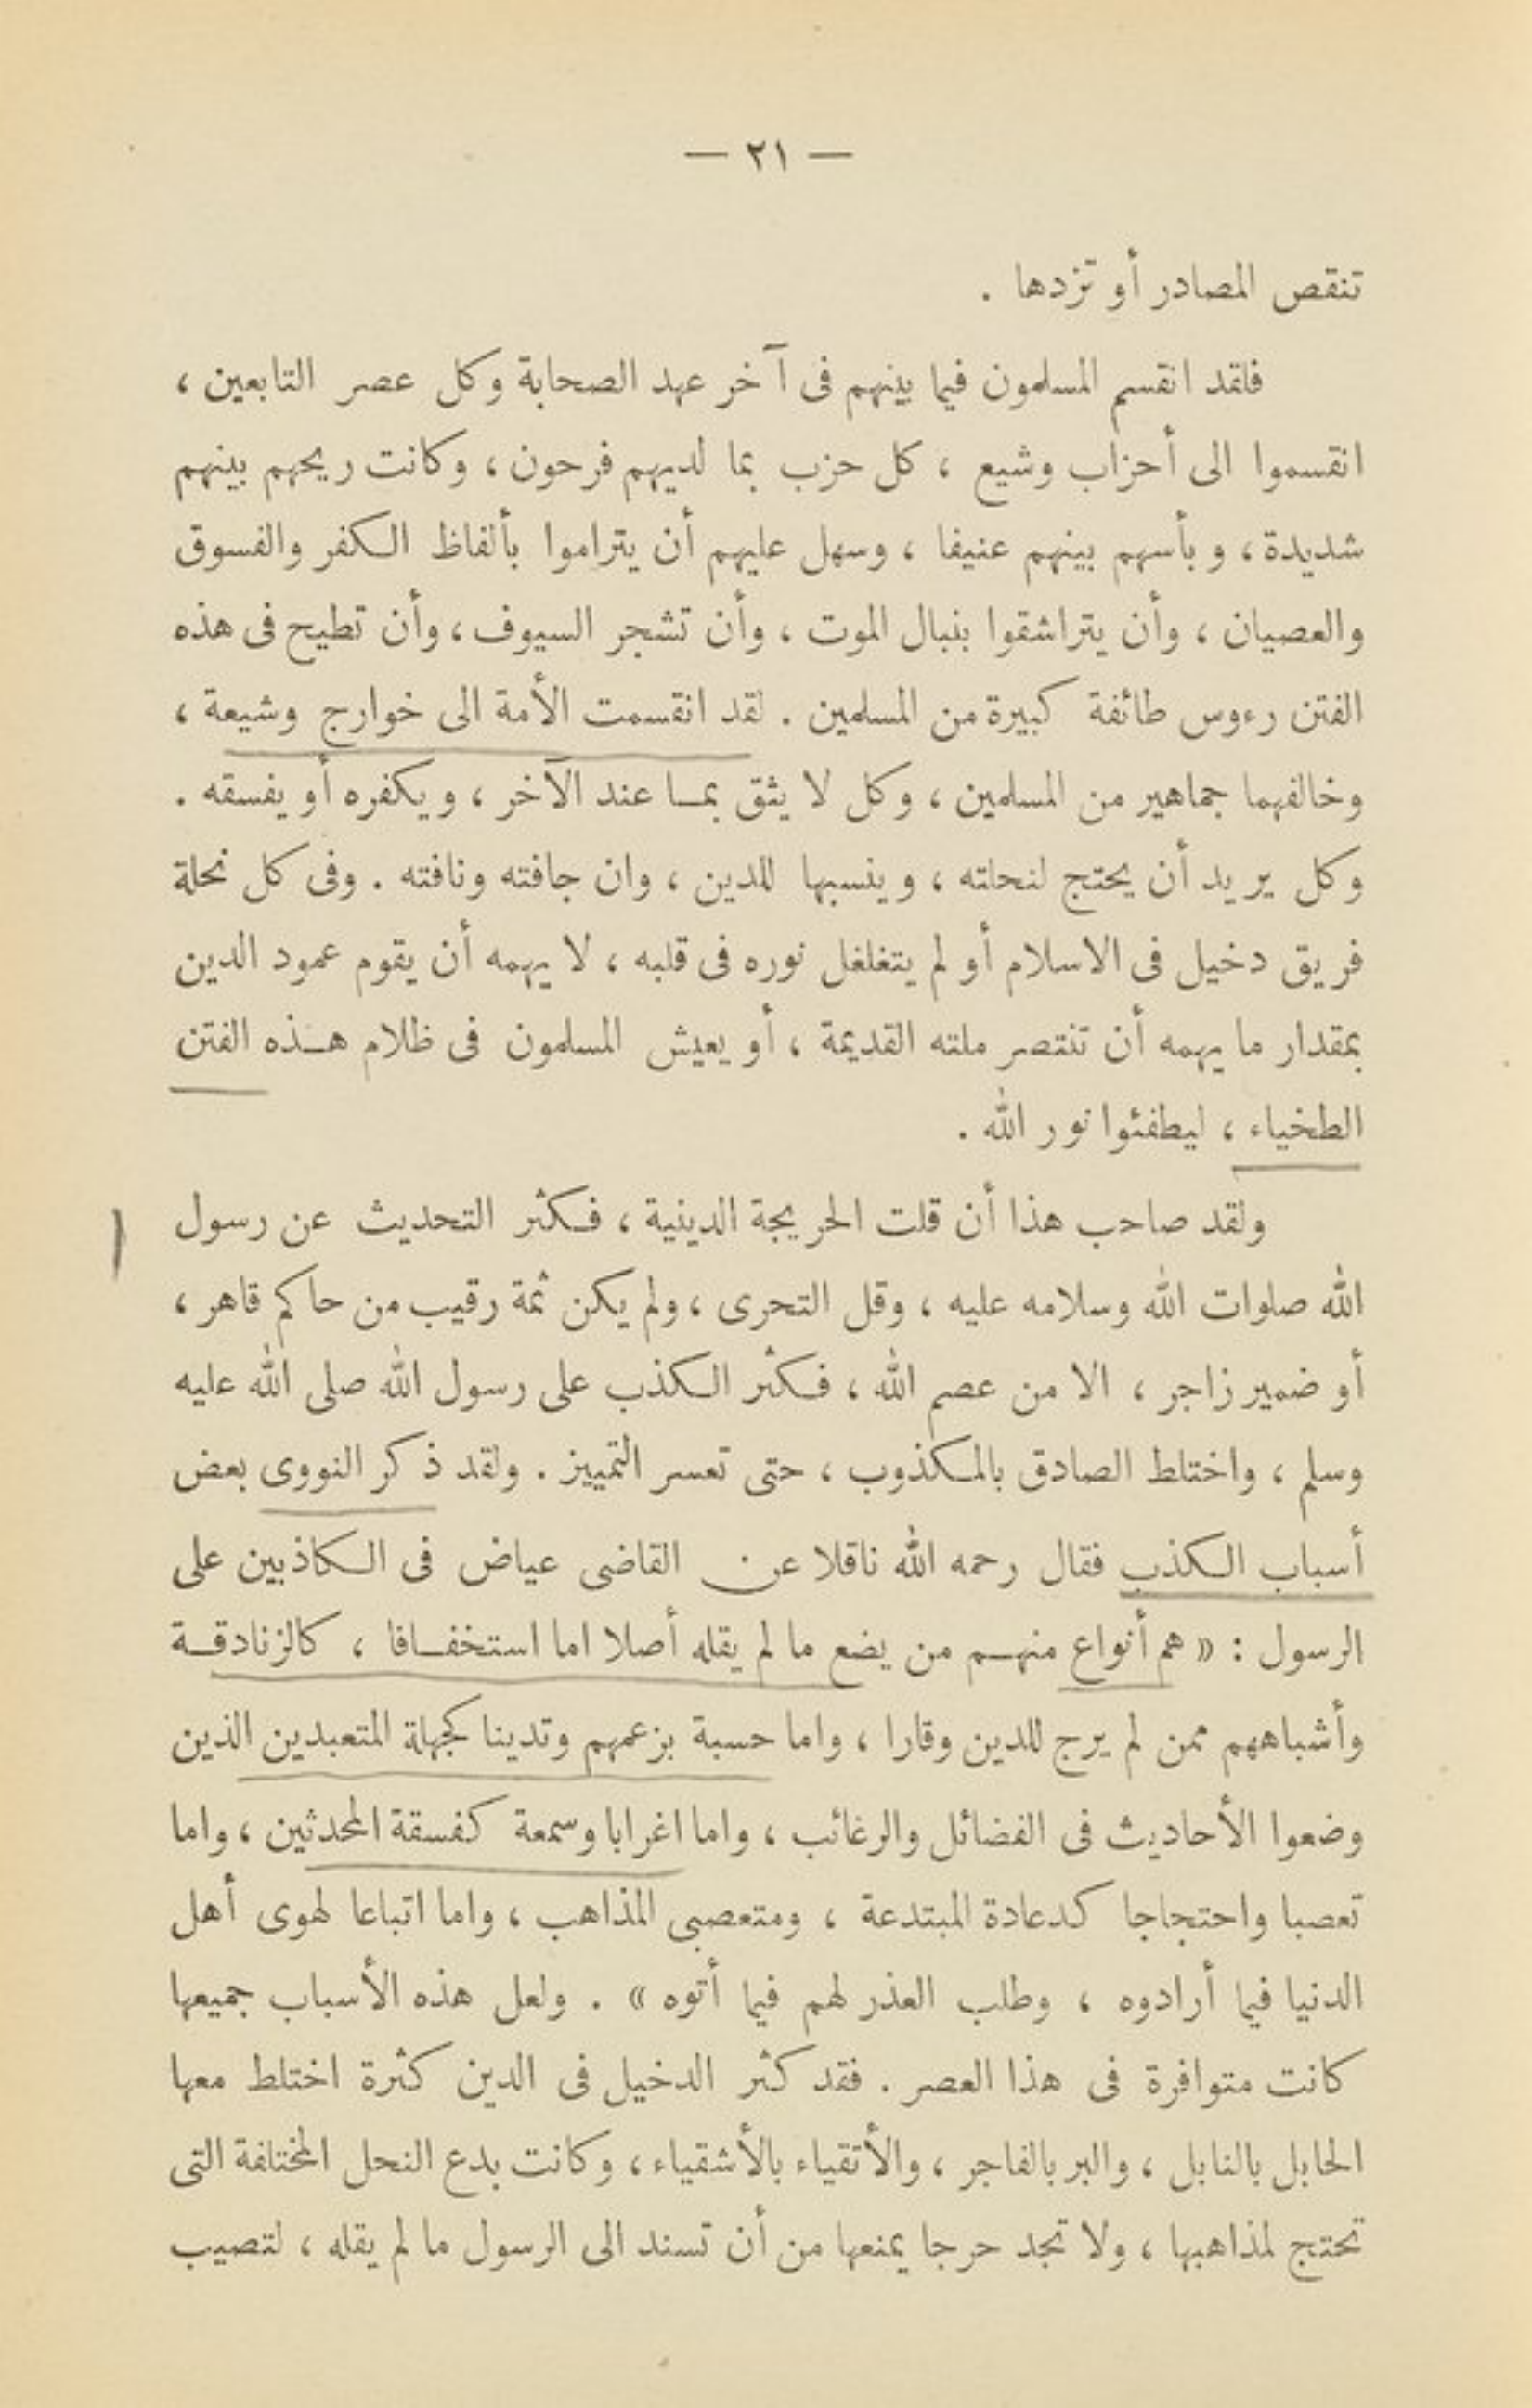 — ٢١ —
تنقص المصادر أو تزدها .
فلقد انقسم المسلمون فيما بينهم فى آخر عهد الصحابة وكل عصر التابعين ،
انقسموا الى أحزاب وشيع ، كل حزب بما لديهم فرحون ، وكانت ريحهم بينهم
شديدة ، وبأسهم بينهم عنيفا ، وسهل عليهم أن يتراموا بألفاظ الكفر والفسوق
والعصيان ، وأن يتراشقوا بنبال الموت ، وأن تشجر السيوف ، وأن تطيح فى هذه
الفتن رءوس طائفة كبيرة من المسلمين . لقد انقسمت الأمة الى خوارج وشيعة ،
وخالفهما جماهير من المسلمين ، وكل لا يثق بمـا عند الآخر ، ويكفره أو يفسقه .
وكل يريد أن يحتج لنحلته ، وينسبها للدين ، وان جافته ونافته . وفى كل نحلة
فريق دخيل فى الاسلام أو لم يتغلغل نوره فى قلبه ، لا يهمه أن يقوم عمود الدين
بمقدار ما يهمه أن تنتصر ملته القديمة ، أو يعيش المسلمون فى ظلام هـذه الفتن
الطخياء ، ليطفئوا نور الله .
ولقد صاحب هذا أن قلت الحريجة الدينية ، فكثر التحديث عن رسول
الله صلوات الله وسلامه عليه ، وقل التحرى ، ولم يكن ثمة رقيب من حاكم قاهر ،
أو ضمير زاجر ، الا من عصم الله ، فكثر الكذب على رسول الله صلى الله عليه
وسلم ، واختلط الصادق بالمكذوب ، حتى تعسر التمييز . ولقد ذكر النووى بعض
أسباب الكذب فقال رحمه الله ناقلا عن القاضى عياض فى الكاذبين على
الرسول : « هم أنواع منهـم من يضع ما لم يقله أصلا اما استخفـافا ، كالزنادقـة
وأشباههم ممن لم يرج للدين وقارا ، واما حسبة بزعمهم وتدينا كجهلة المتعبدين الذين
وضعوا الأحاديث فى الفضائل والرغائب ، واما اغرابا وسمعة كفسقة المحدثين ، واما
تعصبا واحتجاجا كدعادة المبتدعة ، ومتعصبى المذاهب ، واما اتباعا لهوى أهل
الدنيا فيما أرادوه ، وطلب العذر لهم فيما أتوه » . ولعل هذه الأسباب جميعها
كانت متوافرة فى هذا العصر . فقد كثر الدخيل فى الدين كثرة اختلط معها
الحابل بالنابل ، والبر بالفاجر ، والأتقياء بالأشقياء ، وكانت بدع النحل المختلفة التى
تحتج لمذاهبها ، ولا تجد حرجا يمنعها من أن تسند الى الرسول ما لم يقله ، لتصيب